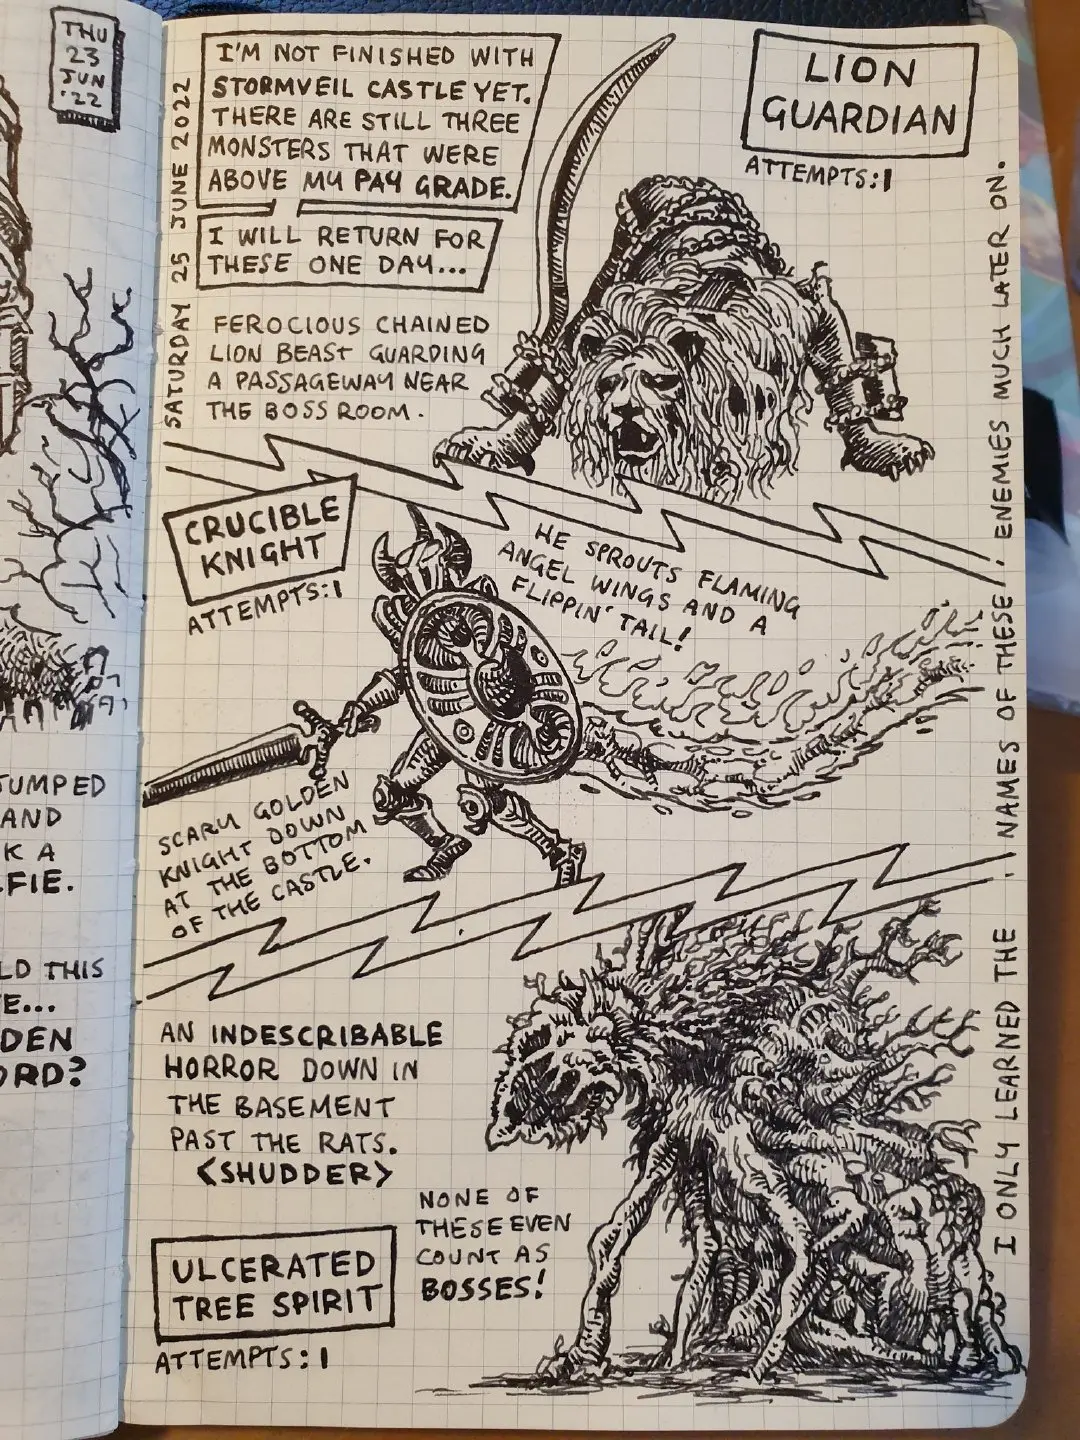 THU
23
JUN
'22
TUMPED
AND
K A
FIE.
LD THIS
E...
DEN
ORD?
SATURDAY 25 JUNE 2022
I'M NOT FINISHED WITH
STORMVEIL CASTLE YET.
THERE ARE STILL THREE
MONSTERS THAT WERE
ABOVE MY PAY GRADE.
I WILL RETURN FOR
THESE ONE DAY...
LION
GUARDIAN
ATTEMPTS: 1
FEROCIOUS CHAINED
LION BEAST GUARDING
A PASSAGEWAY NEAR
THE BOSS ROOM.
CRUCIBLE
KNIGHT
ATTEMPTS: 1
HE SPROUTS FLAMING
ANGEL WINGS AND A
FLIPPIN' TAIL!
SCARY GOLDEN
KNIGHT DOWN
AT THE BOTTOM
OF THE CASTLE.
AN INDESCRIBABLE
HORROR DOWN IN
THE BASEMENT
PAST THE RATS.
<SHUDDER>
NONE OF
THESE EVEN
COUNT AS
BOSSES!
ULCERATED
TREE SPIRIT
ATTEMPTS: 1
I ONLY LEARNED THE NAMES OF THESE ENEMIES MUCH LATER ON.